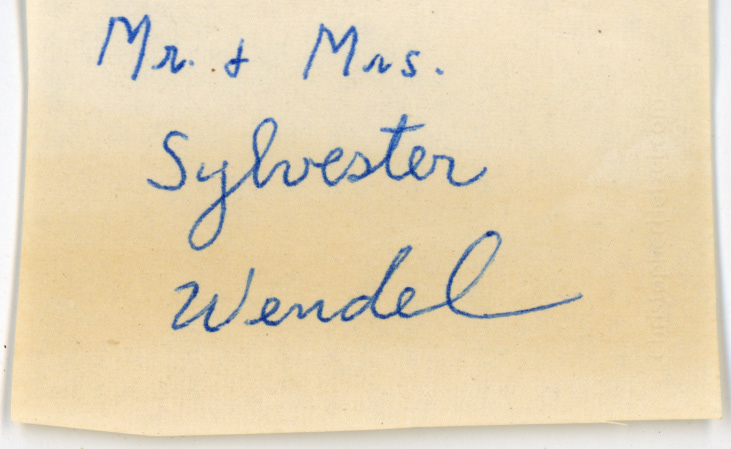 Mr. & Mrs.
Sylvester
Wendel